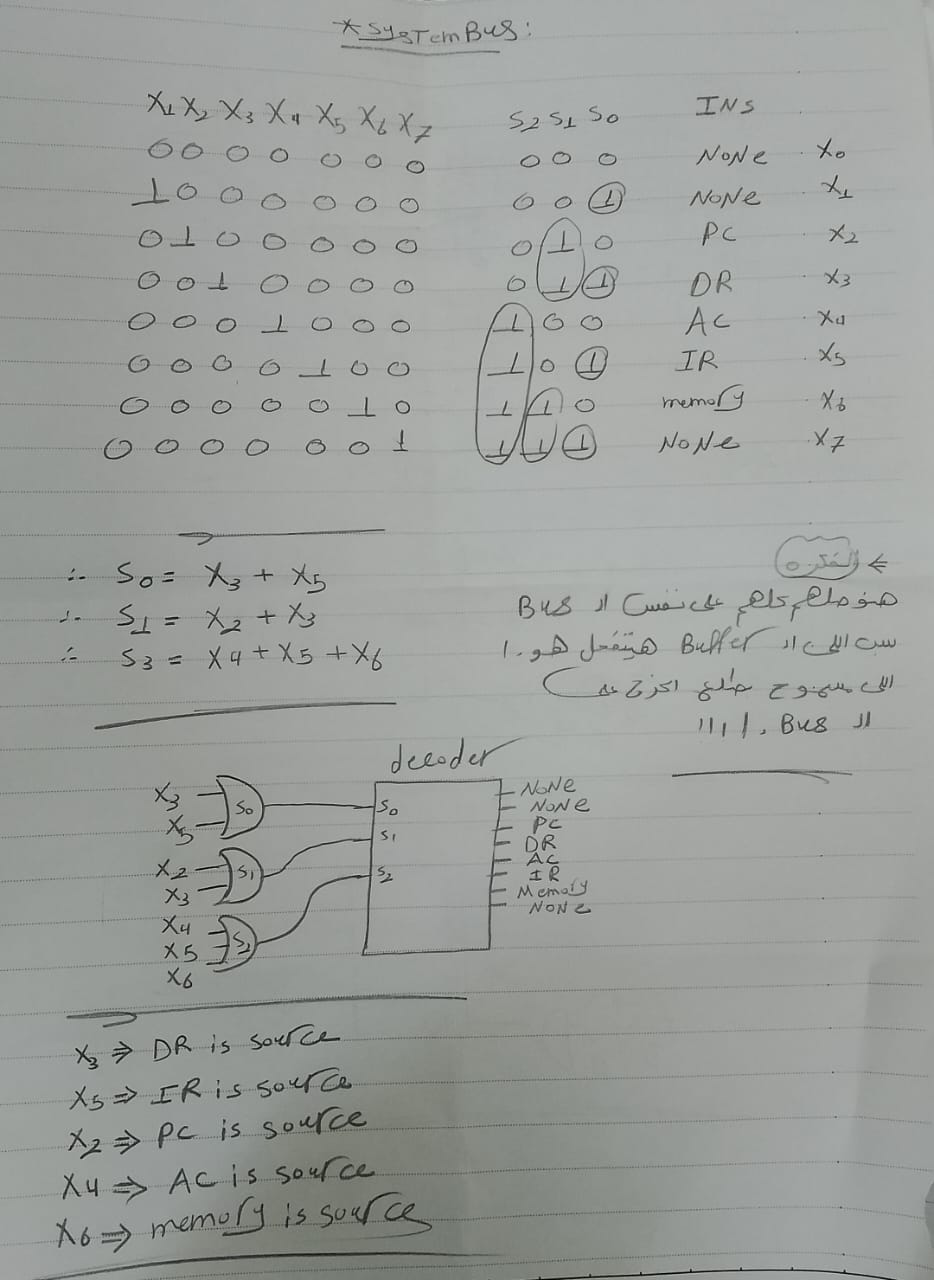 * System Bus:
X1 X2 X3 X4 X5 X6 X7 S2 S1 S0 INS
0 0 0 0 0 0 0 0 0 0 NONe X0
1 0 0 0 0 0 0 0 0 1 NONe X1
0 1 0 0 0 0 0 0 1 0 PC X2
0 0 1 0 0 0 0 0 1 1 DR X3
0 0 0 1 0 0 0 1 0 0 AC X4
0 0 0 0 1 0 0 1 0 1 IR X5
0 0 0 0 0 1 0 1 1 0 memory X6
0 0 0 0 0 0 1 1 1 1 NONe X7
∴ S0 = X3 + X5
∴ S1 = X2 + X3
∴ S3 = X4 + X5 + X6
← الفكره
هنوصلهم كلهم على نفس الـ Bus
بس اللي الـ Buffer هيتفعل هو
اللى مسموح يطلع على
الـ Bus
decoder
X3
X5
S0
X2
X3
S1
X4
X5
X6
S2
S0
S1
S2
NONe
NONe
PC
DR
AC
IR
Memory
NONe
X3 ⇒ DR is source
X5 ⇒ IR is source
X2 ⇒ PC is source
X4 ⇒ AC is source
X6 ⇒ memory is source